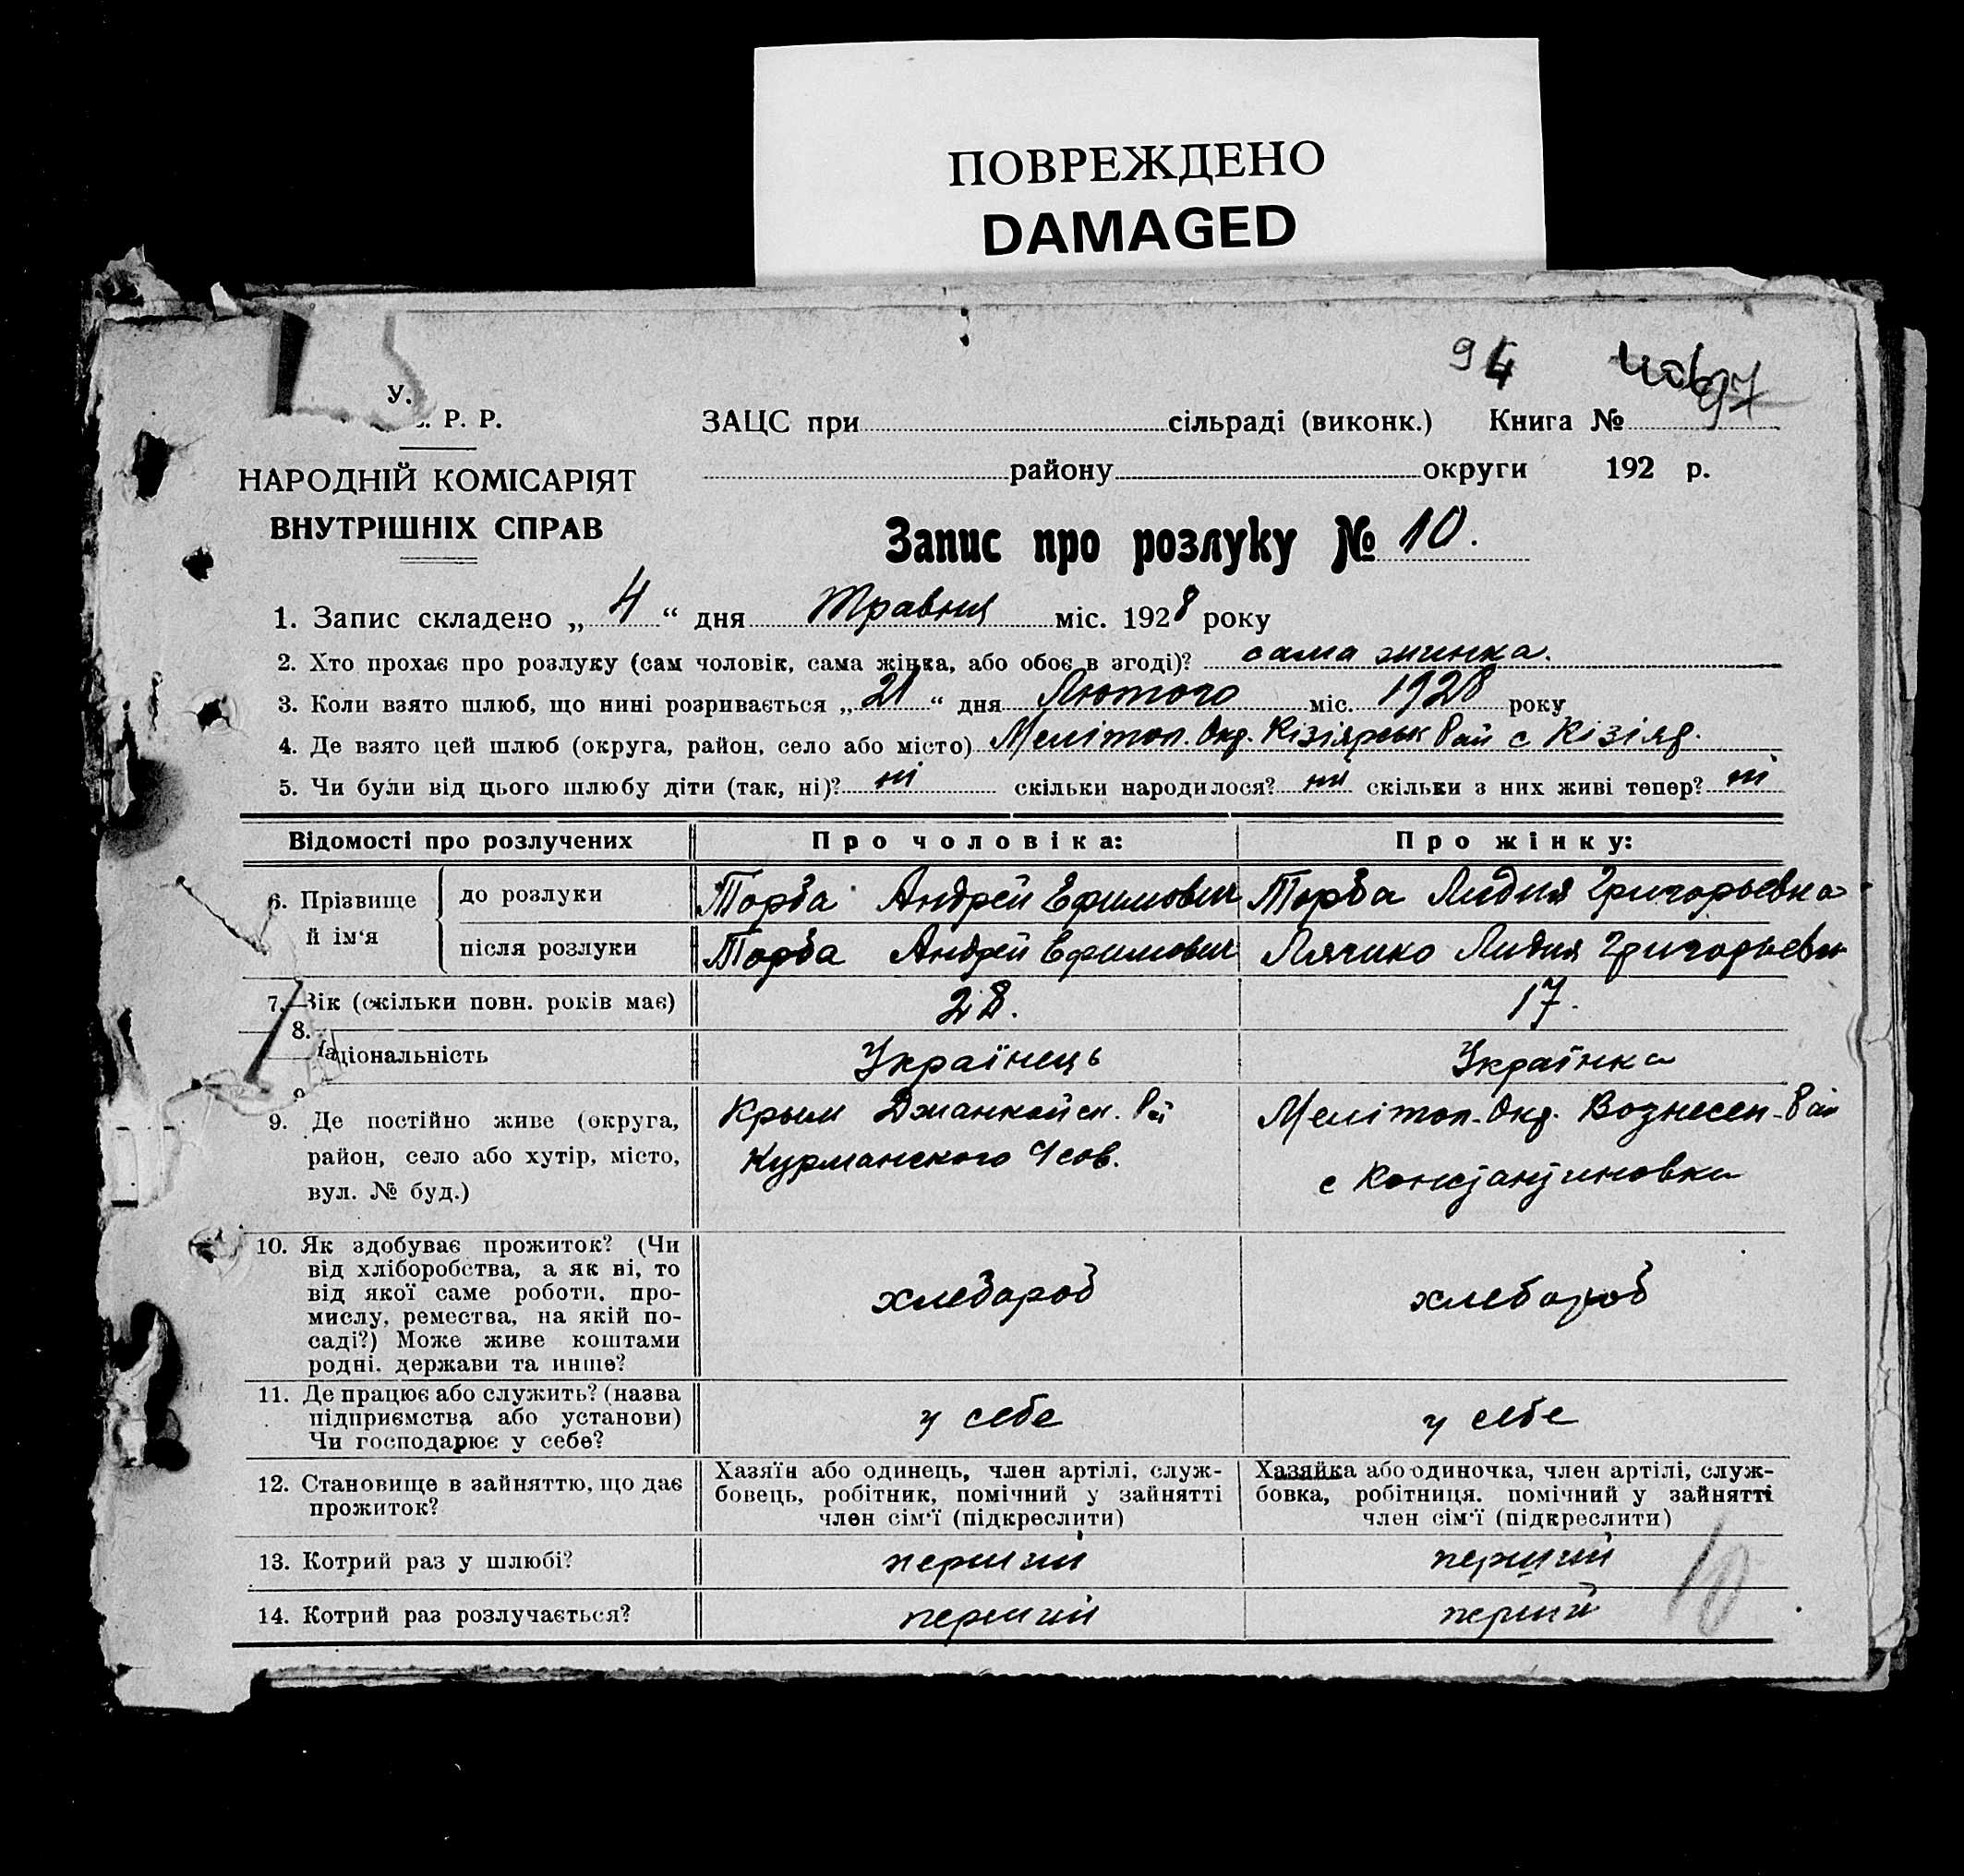 ПОВРЕЖДЕНО
DAMAGED
94
97
У.
С. Р. Р.
ЗАЦС при сільраді (виконк.) Книга №
НАРОДНІЙ КОМІСАРІЯТ
району округи 192 р.
ВНУТРІШНІХ СПРАВ
Запис про розлуку № 10.
1. Запис складено „ 4 “ дня Травня міс. 1928 року
2. Хто прохає про розлуку (сам чоловік, сама жінка, або обоє в згоді)? сама жинка.
3. Коли взято шлюб, що нині розривається „ 21 “ дня Лютого міс. 1928 року
4. Де взято цей шлюб (округа, район, село або місто) Мелітоп. Окр. Кізіярськ Рай с Кізіяр.
5. Чи були від цього шлюбу діти (так, ні)? ні скільки народилося? ни скільки з них живі тепер? ні
Відомості про розлучених Про чоловіка: Про жінку:
6. Прізвище й ім‘я до розлуки Торба Андрей Ефимович Торба Лидия Григорьевна
після розлуки Торба Андрей Ефимович Лидия Григорьевн
7. Вік (скільки повн. років має) 28. 17.
8.
Національність Українець Українка
9. Де постійно живе (округа, Крым Джанкойск. Рй Мелітоп. Окр. Вознесен-Рай
район, село або хутір, місто, Курманского с Константиновка
вул. № буд.)
10. Як здобуває прожиток? (Чи
від хліборобства, а як ні, то
від якої саме роботи, про-
мислу, ремества, на якій по- хлебороб хлебороб
саді?) Може живе коштами
родні, держави та инше?
11. Де працює або служить? (назва
підприємства або установи) у себе у себе
Чи господарює у себе?
12. Становище в зайняттю, що дає прожиток? Хазяїн або одинець, член артілі, служ- Хазяйка або одиночка, член артілі, служ-
бовець, робітник, помічний у зайнятті бовка, робітниця, помічний у зайнятті
член сім‘ї (підкреслити) член сім‘ї (підкреслити)
13. Котрий раз у шлюбі? перший перший
14. Котрий раз розлучається? перший перший
10